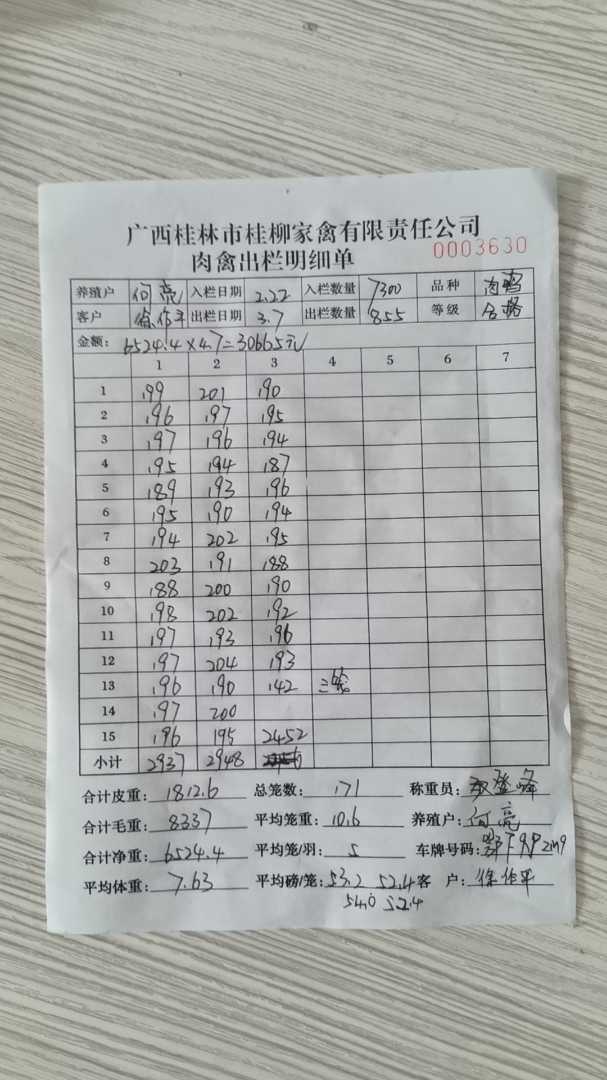 广西桂林市桂柳家禽有限责任公司
肉禽出栏明细单 0003630
养殖户 向亮 入栏日期 2.22 入栏数量 7300 品种 肉鸭
客户 徐作平 出栏日期 3.7 出栏数量 855 等级 合格
金额: 6524.4×4.7=30665元
1 2 3 4 5 6 7
1 199 201 190
2 196 197 195
3 197 196 194
4 195 194 187
5 189 193 196
6 195 190 194
7 194 202 195
8 203 191 188
9 188 200 190
10 198 202 192
11 197 193 196
12 197 204 193
13 196 190 142 三笼
14 197 200
15 196 195 2452
小计 2937 2948
合计皮重: 1812.6 总笼数: 171 称重员:
合计毛重: 8337 平均笼重: 10.6 养殖户: 向亮
合计净重: 6524.4 平均笼/羽: 5 车牌号码:
平均体重: 7.63 平均磅/笼: 53.2 52.4 客 户: 徐作平
54.0 52.4